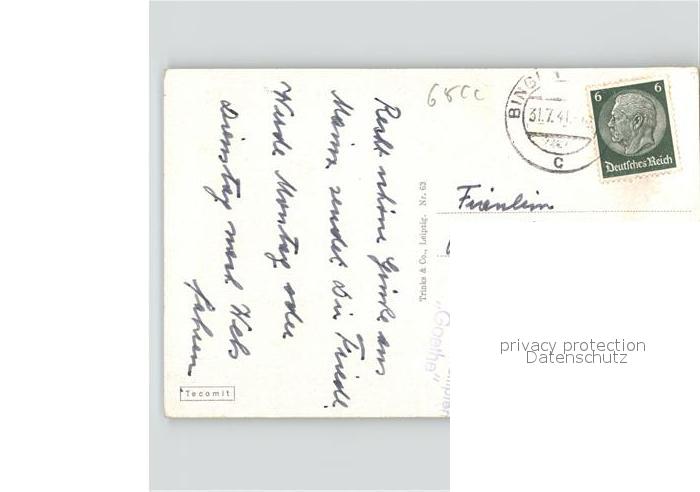 Recht schöne Grüße aus
Mainz sendet Dir Friedl.
Werde Montag oder
Dienstag nach Wels
fahren
Tecomit
Trinks & Co., Leipzig. Nr. 63
"Goethe"
68
BING
31.7.41
c
6 6
Deutsches Reich
Fräulein
privacy protection
Datenschutz